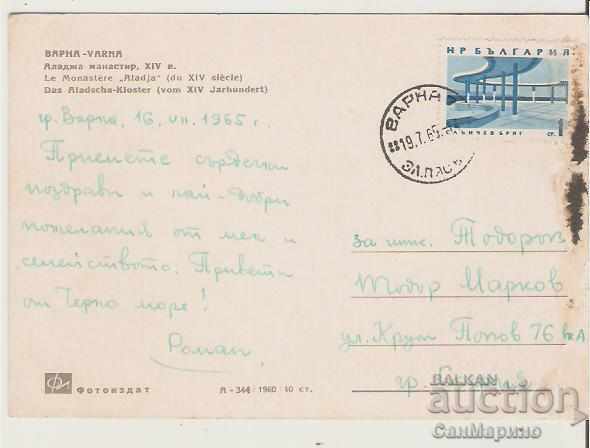 ВАРНА-VARNA
Аладжа манастир, XIV в.
Le Monastère „Aladja" (du XIV siècle)
Das Aladscha-Kloster (vom XIV Jarhundert)
гр. Варна, 16.VII.1965 г.
Приемете сърдечни
поздрави и най-добри
пожелания от мен и
семейството. Привети
от Черно море!
Роман
НР БЪЛГАРИЯ
СЛЪНЧЕВ БРЯГ СТ. 1
ВАРНА
19.7.65
ЗЛ.ПЯС
за инж. Тодоров
Тодор Марков
ул. Крум Попов 76 вх А
гр. София
Фотоиздат
А-344 1960 10 ст.
BALKAN
auction
СанМарино